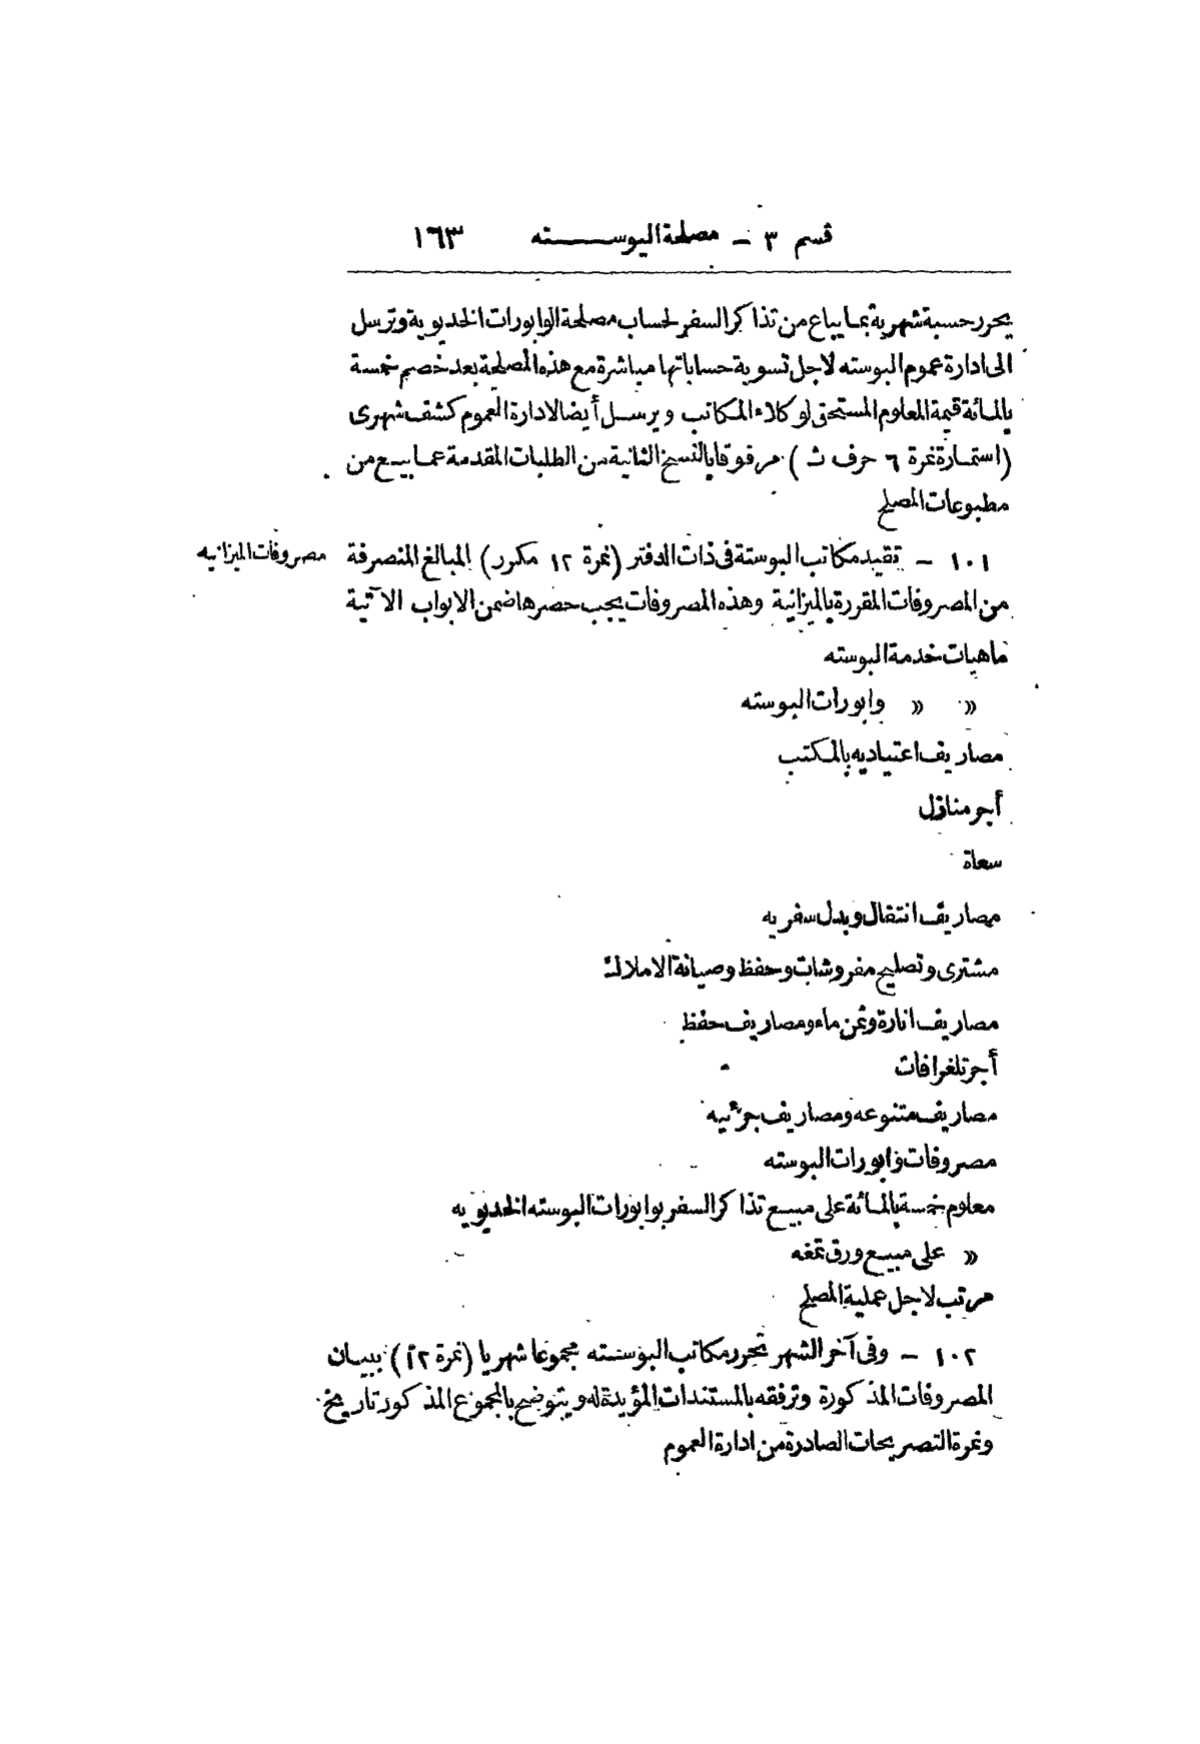 قسم ٣ – مصلحة البوسته ١٦٣
يحرر حسبة شهرية بما يباع من تذاكر السفر لحساب مصلحة الوابورات الخديوية وترسل
الى ادارة عموم البوسته لاجل تسوية حساباتها مباشرة مع هذه المصلحة بعد خصم خمسة
بالمائة قيمة المعلوم المستحق لوكلاء المكاتب ويرسل أيضا لادارة العموم كشف شهرى
(استمارة نمرة ٦ حرف ث) مرفوقا بالنسخ الثانية من الطلبات المقدمة عما بيع من
مطبوعات المصلح
١٠١ – تقيد مكاتب البوستة فى ذات الدفتر (نمرة ١٢ مكرر) المبالغ المنصرفة
مصروفات الميزانيه
من المصروفات المقررة بالميزانية وهذه المصروفات يجب حصرها ضمن الابواب الآتية
ماهيات خدمة البوسته
» » وابورات البوسته
مصاريف اعتياديه بالمكتب
أجر منازل
سعاة
مصاريف انتقال وبدل سفريه
مشترى وتصليح مفروشات وحفظ وصيانة الاملاك
مصاريف انارة وثمن ماء ومصاريف حفظ
أجر تلغرافات
مصاريف متنوعه ومصاريف جزئيه
مصروفات وابورات البوسته
معلوم خمسة بالمائة على مبيع تذاكر السفر بوابورات البوسته الخديويه
» على مبيع ورق تمغه
مرتب لاجل عملية المصلح
١٠٢ – وفى آخر الشهر تحرر مكاتب البوسته مجموعا شهريا (نمرة ١٢) ببيان
المصروفات المذكورة وترفقه بالمستندات المؤيدة له ويتوضح بالمجموع المذكور تاريخ
ونمرة التصريحات الصادرة من ادارة العموم